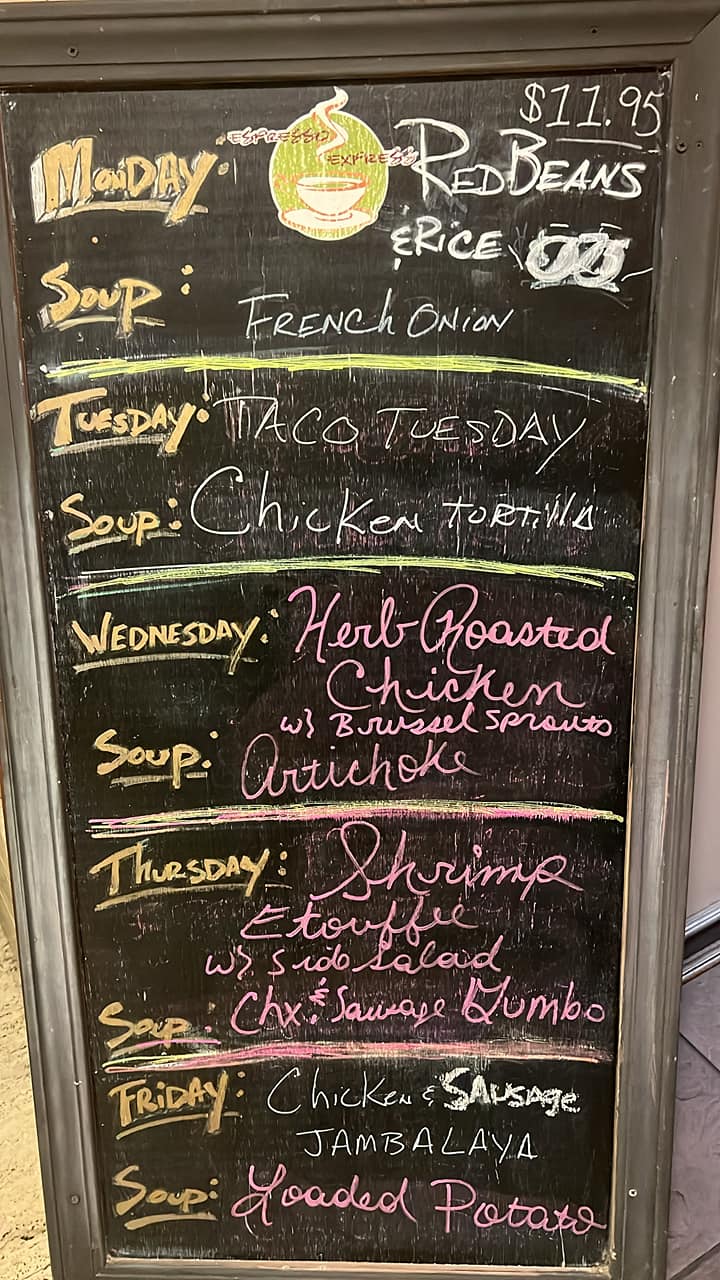 $11.95
MONDAY:
ESPRESSO
EXPRESS
RED BEANS
& RICE
SOUP:
FRENCH ONION
TUESDAY: TACO TUESDAY
SOUP: Chicken TORTILLA
WEDNESDAY: Herb Roasted
Chicken
w/ Brussel Sprouts
SOUP: Artichoke
THURSDAY: Shrimp
Etouffee
w/ Side Salad
SOUP: Chx & Sausage Gumbo
FRIDAY: Chicken & SAUSAGE
JAMBALAYA
SOUP: Loaded Potato